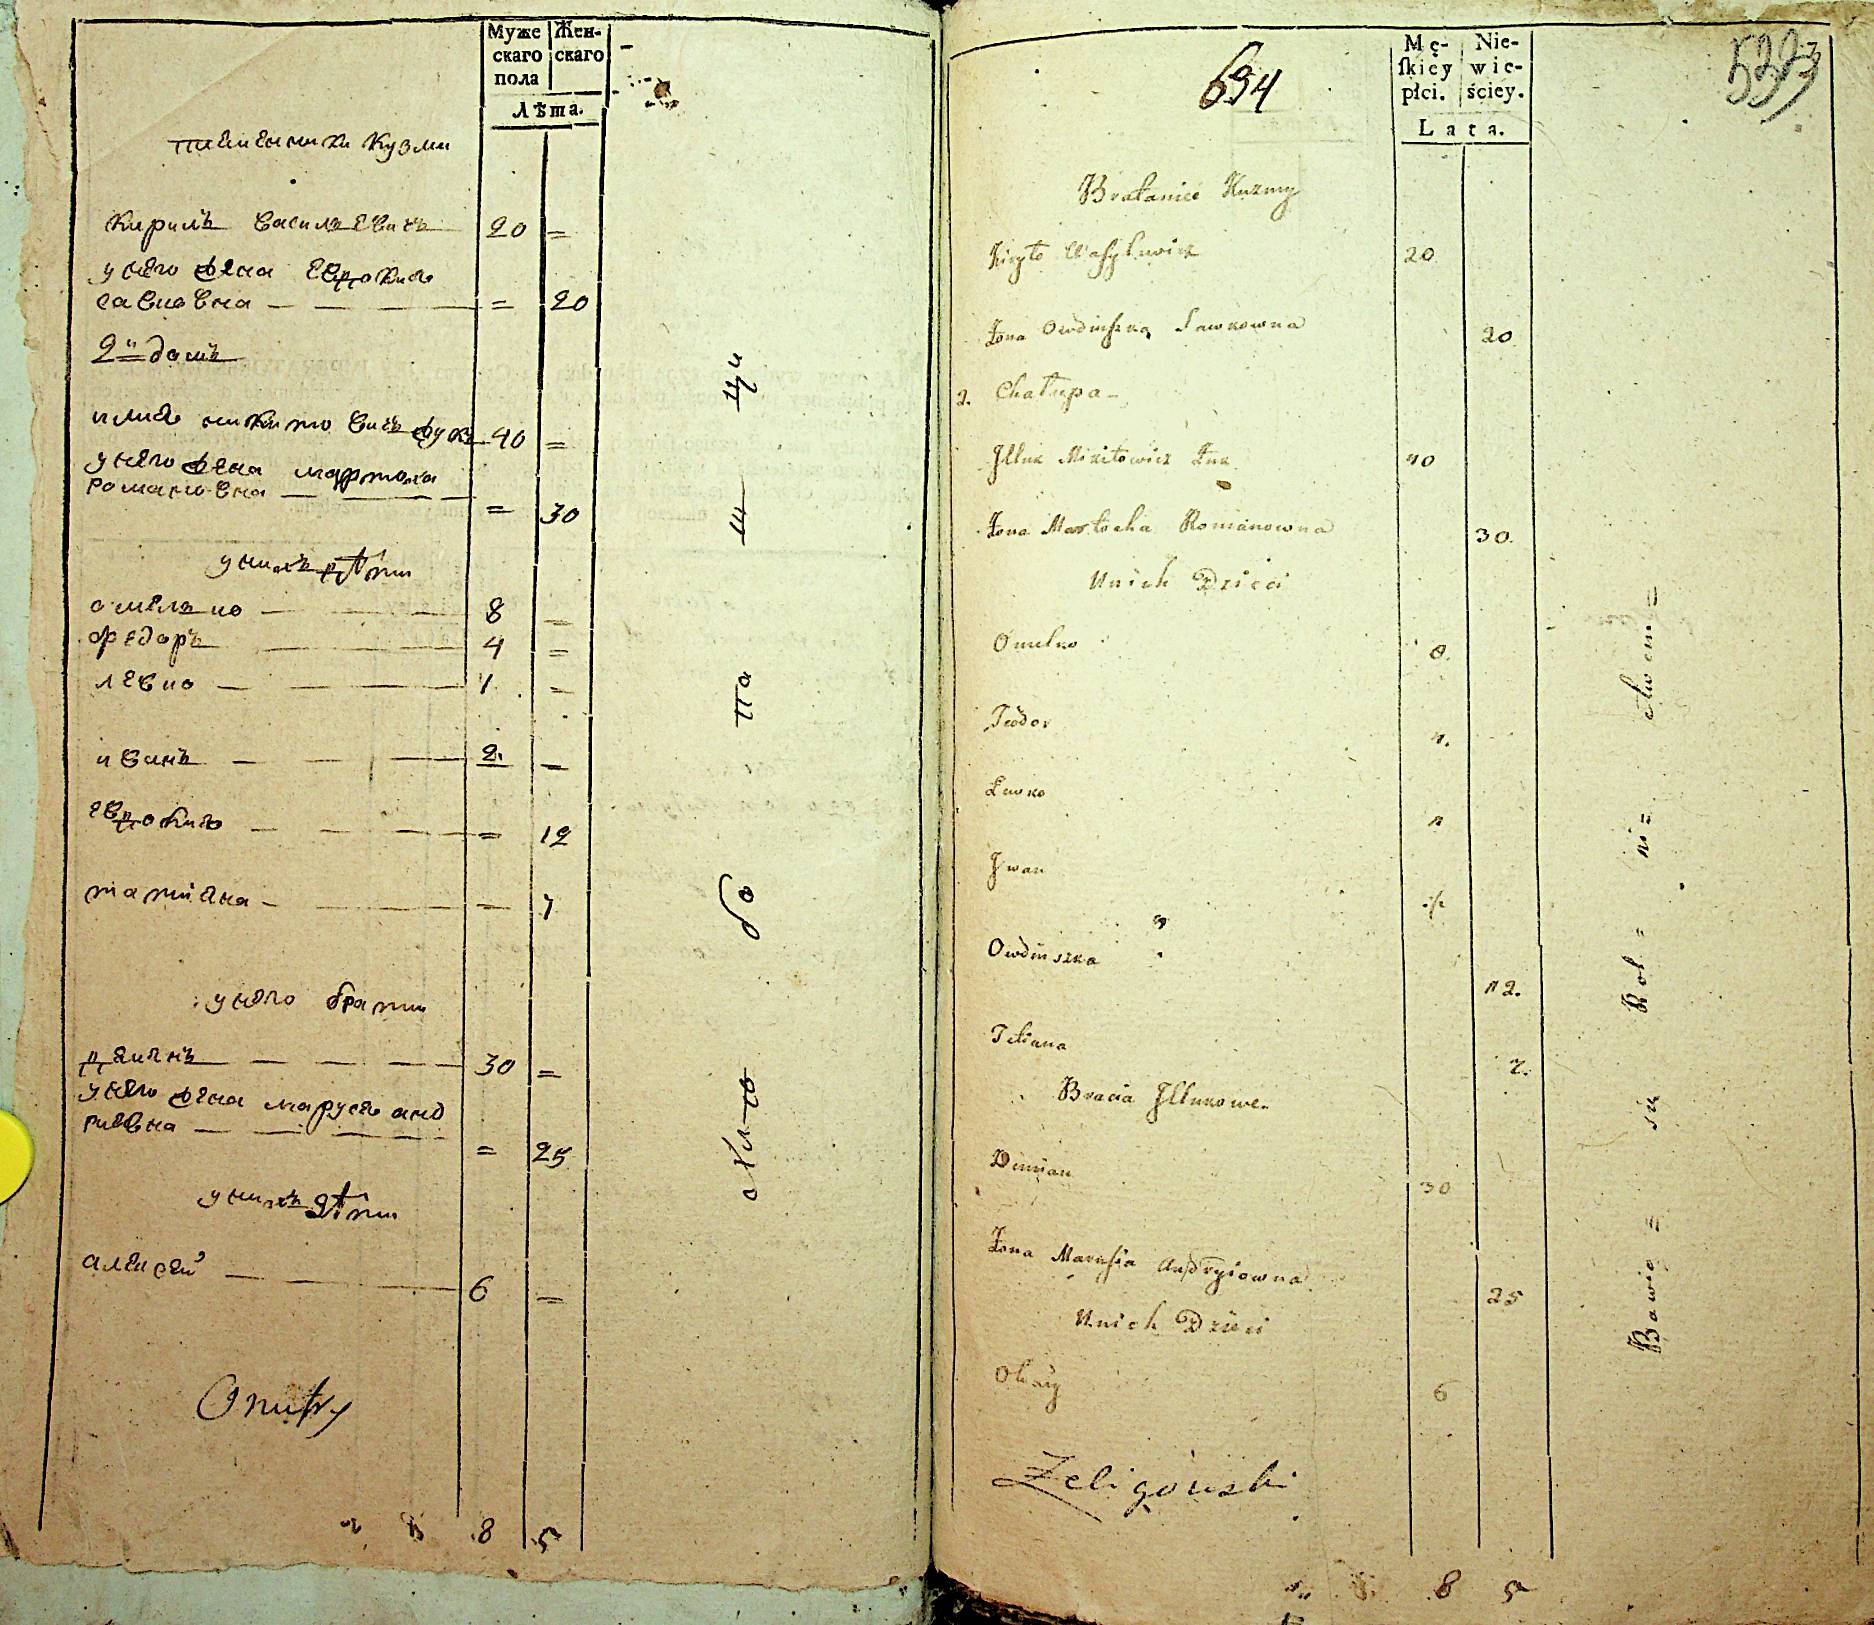 Муже Жен-
скаго скаго
пола
Лѣта.
племенники Кузми
Кирилъ Василевичъ 20 =
у него жена Евдокия
Савковна = 20
2й домъ
илия никитовичъ жукъ 40 =
у него жена мартоха
романовна = 30
у нихъ дѣти
омелько 8 =
федоръ 4 =
левко 1 =
иванъ 2. =
евдокия = 12
татиана = 7
у него брати
демянъ 30 =
у него жена маруся анд
риевна = 25
у нихъ дѣти
алексей 6 =
8 5
694
Mę- Nie-
ſkiey wie-
płci. ściey.
Lata.
Bratanice Kuzmy
Kiryło Waſylewicz 20
Żona Owdiuſzka Sawkowna 20
2. Chałupa
Illuk Mikitowicz Żuk 40
Żona Martocha Romanowna 30.
U nich Dzieci
Omelko 8.
Teodor 4.
Lewko 1
Iwan
Owdiuszka 12.
Tetiana 7.
Bracia Illukowe.
Demian 30
Żona Maruſia Andryiowna 25
U nich Dzieci
Olexiy 6
Zeligowski
8 5
Bawio = sie Rol = ni= ctwem =